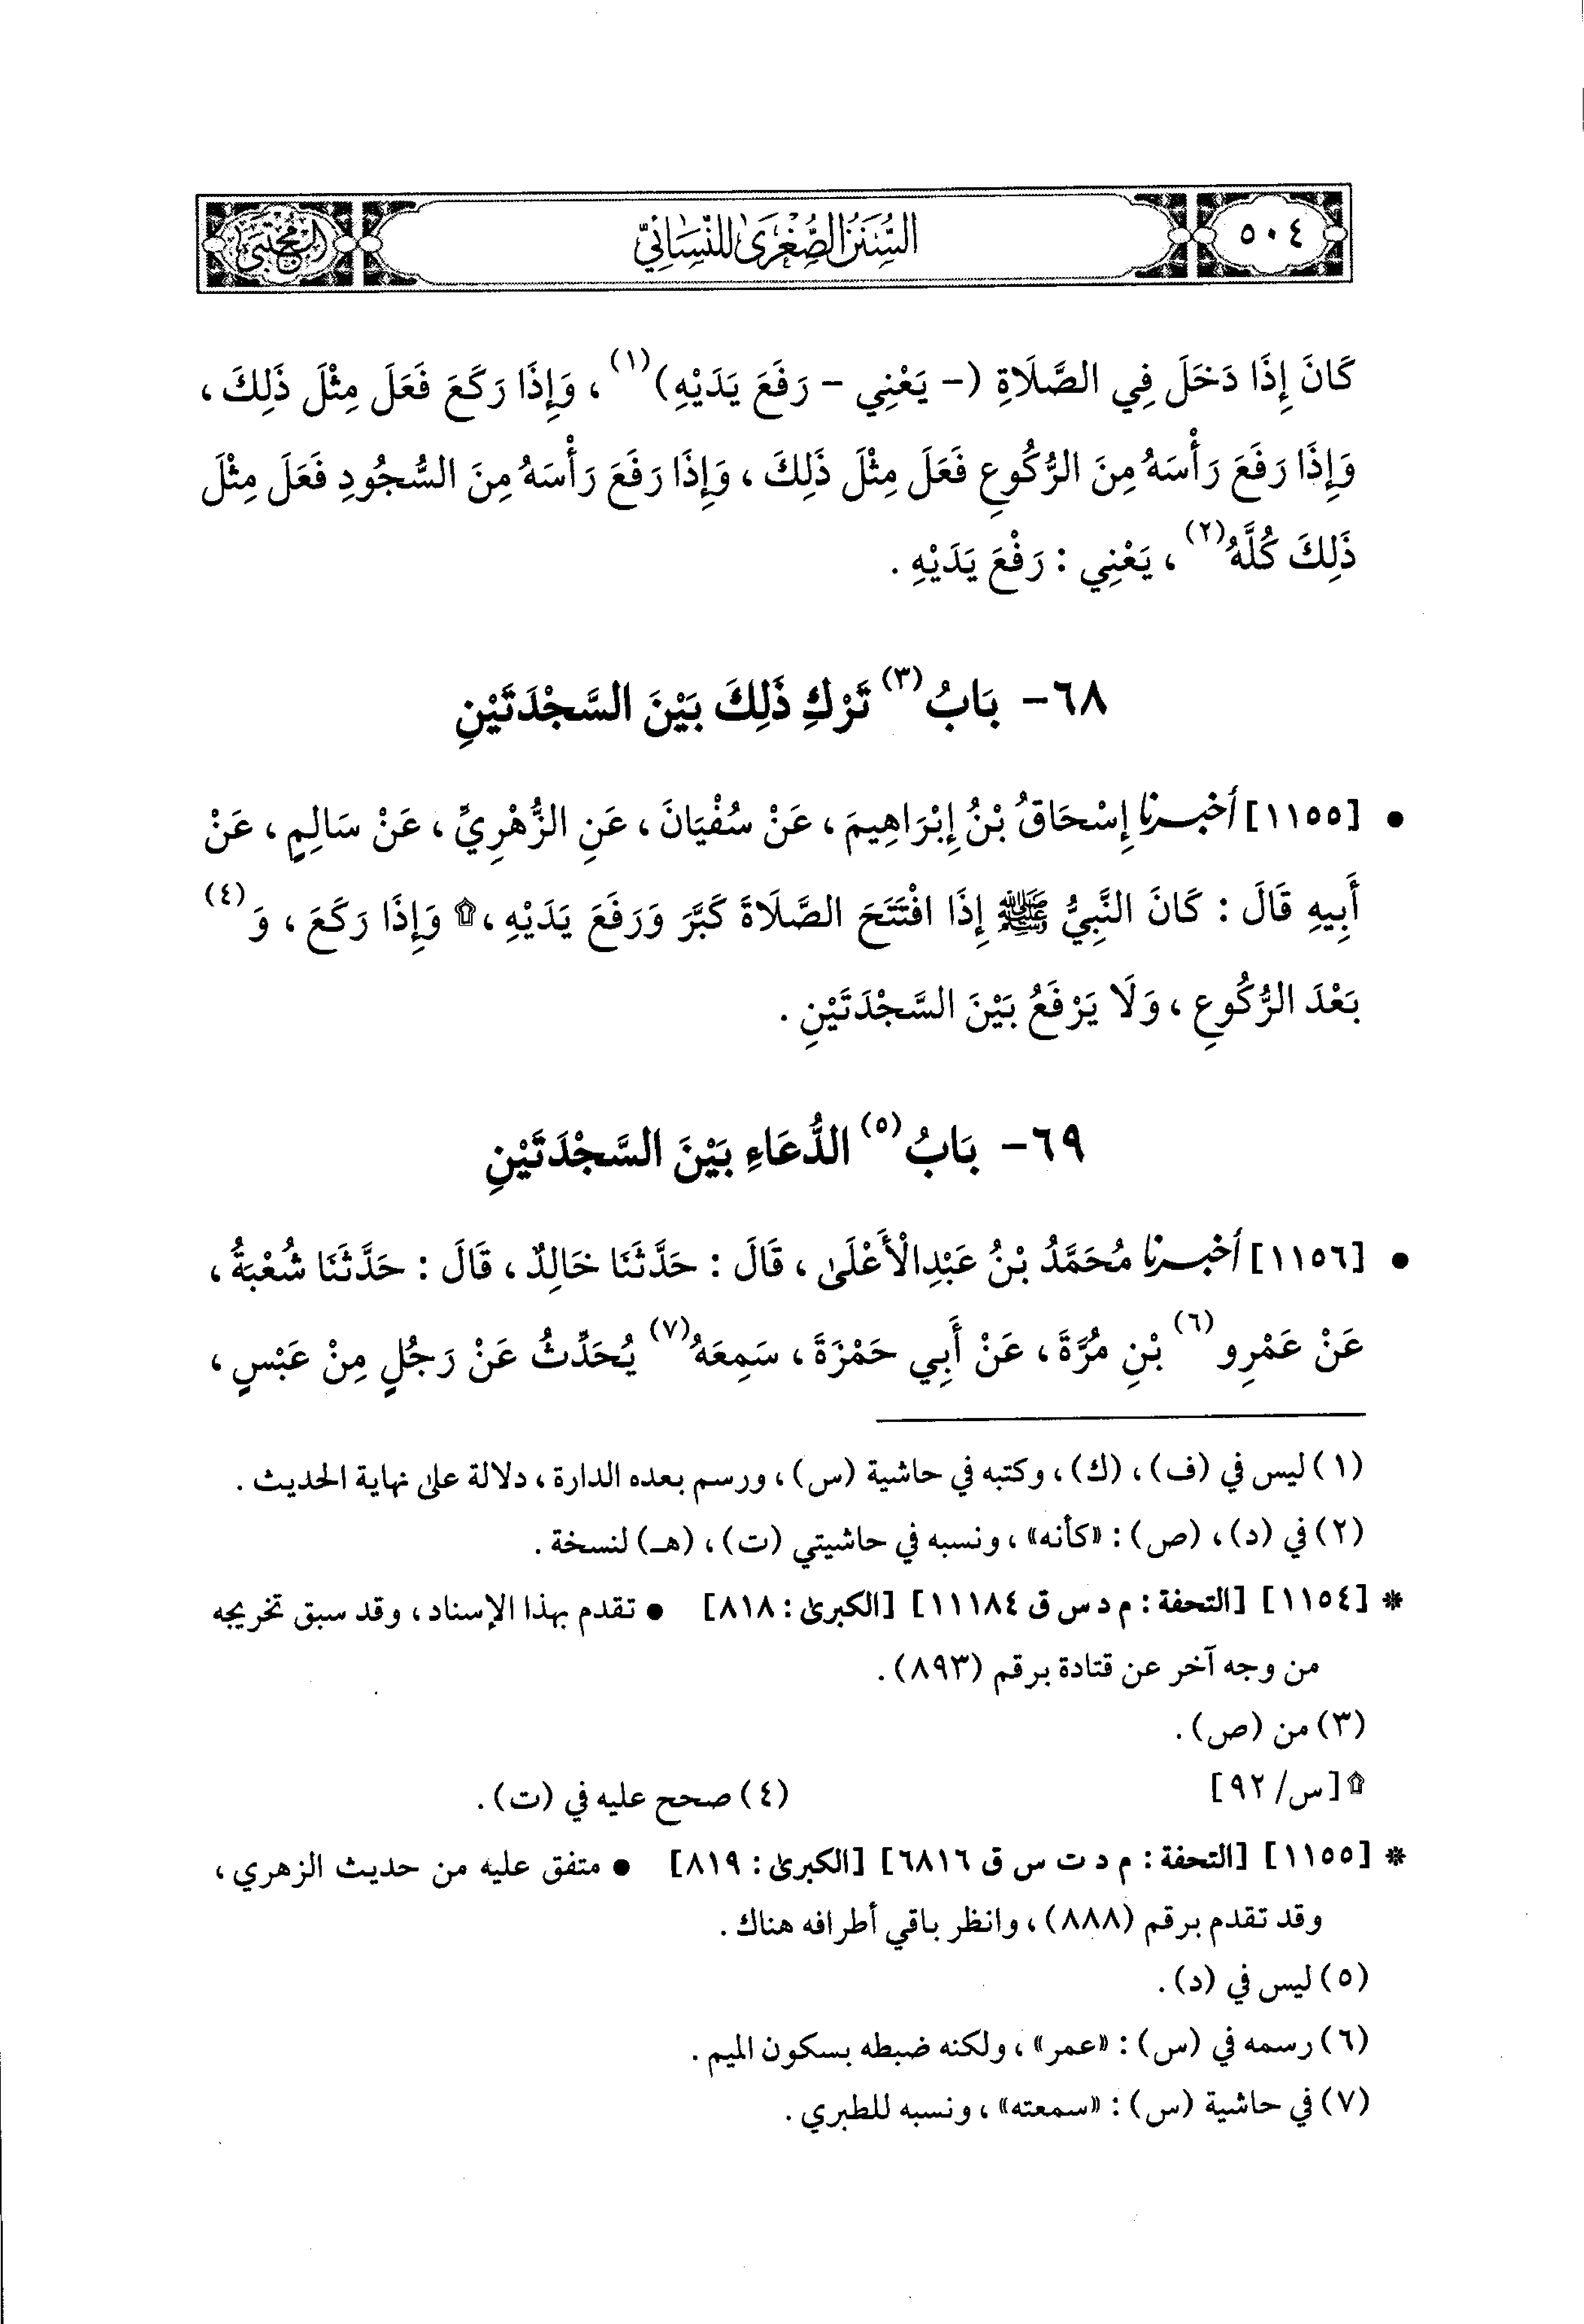 ٥٠٤
السُّنَنُ الصُّغْرَىٰ لِلنَّسَائِيِّ
المجتبى
كَانَ إِذَا دَخَلَ فِي الصَّلَاةِ (- يَعْنِي - رَفَعَ يَدَيْهِ)(١)، وَإِذَا رَكَعَ فَعَلَ مِثْلَ ذَلِكَ،
وَإِذَا رَفَعَ رَأْسَهُ مِنَ الرُّكُوعِ فَعَلَ مِثْلَ ذَلِكَ، وَإِذَا رَفَعَ رَأْسَهُ مِنَ السُّجُودِ فَعَلَ مِثْلَ
ذَلِكَ كُلَّهُ(٢)، يَعْنِي : رَفْعَ يَدَيْهِ.
٦٨- بَابُ(٣) تَرْكِ ذَلِكَ بَيْنَ السَّجْدَتَيْنِ
• [١١٥٥] أَخْبَرَنَا إِسْحَاقُ بْنُ إِبْرَاهِيمَ، عَنْ سُفْيَانَ، عَنِ الزُّهْرِيِّ، عَنْ سَالِمٍ، عَنْ
أَبِيهِ قَالَ : كَانَ النَّبِيُّ ﷺ إِذَا افْتَتَحَ الصَّلَاةَ كَبَّرَ وَرَفَعَ يَدَيْهِ،۩ وَإِذَا رَكَعَ، وَ(٤)
بَعْدَ الرُّكُوعِ، وَلَا يَرْفَعُ بَيْنَ السَّجْدَتَيْنِ.
٦٩- بَابُ(٥) الدُّعَاءِ بَيْنَ السَّجْدَتَيْنِ
• [١١٥٦] أَخْبَرَنَا مُحَمَّدُ بْنُ عَبْدِالْأَعْلَىٰ، قَالَ : حَدَّثَنَا خَالِدٌ، قَالَ : حَدَّثَنَا شُعْبَةُ،
عَنْ عَمْرِو(٦) بْنِ مُرَّةَ، عَنْ أَبِي حَمْزَةَ، سَمِعَهُ(٧) يُحَدِّثُ عَنْ رَجُلٍ مِنْ عَبْسٍ،
(١) ليس في (ف)، (ك)، وكتبه في حاشية (س)، ورسم بعده الدارة، دلالة على نهاية الحديث.
(٢) في (د)، (ص) : «كأنه»، ونسبه في حاشيتي (ت)، (هـ) لنسخة.
* [١١٥٤] [التحفة : م د س ق ١١١٨٤] [الكبرىٰ : ٨١٨] • تقدم بهذا الإسناد، وقد سبق تخريجه
من وجه آخر عن قتادة برقم (٨٩٣).
(٣) من (ص).
۩ [س/ ٩٢] (٤) صحح عليه في (ت).
* [١١٥٥] [التحفة : م د ت س ق ٦٨١٦] [الكبرىٰ : ٨١٩] • متفق عليه من حديث الزهري،
وقد تقدم برقم (٨٨٨)، وانظر باقي أطرافه هناك.
(٥) ليس في (د).
(٦) رسمه في (س) : «عمر»، ولكنه ضبطه بسكون الميم.
(٧) في حاشية (س) : «سمعته»، ونسبه للطبري.